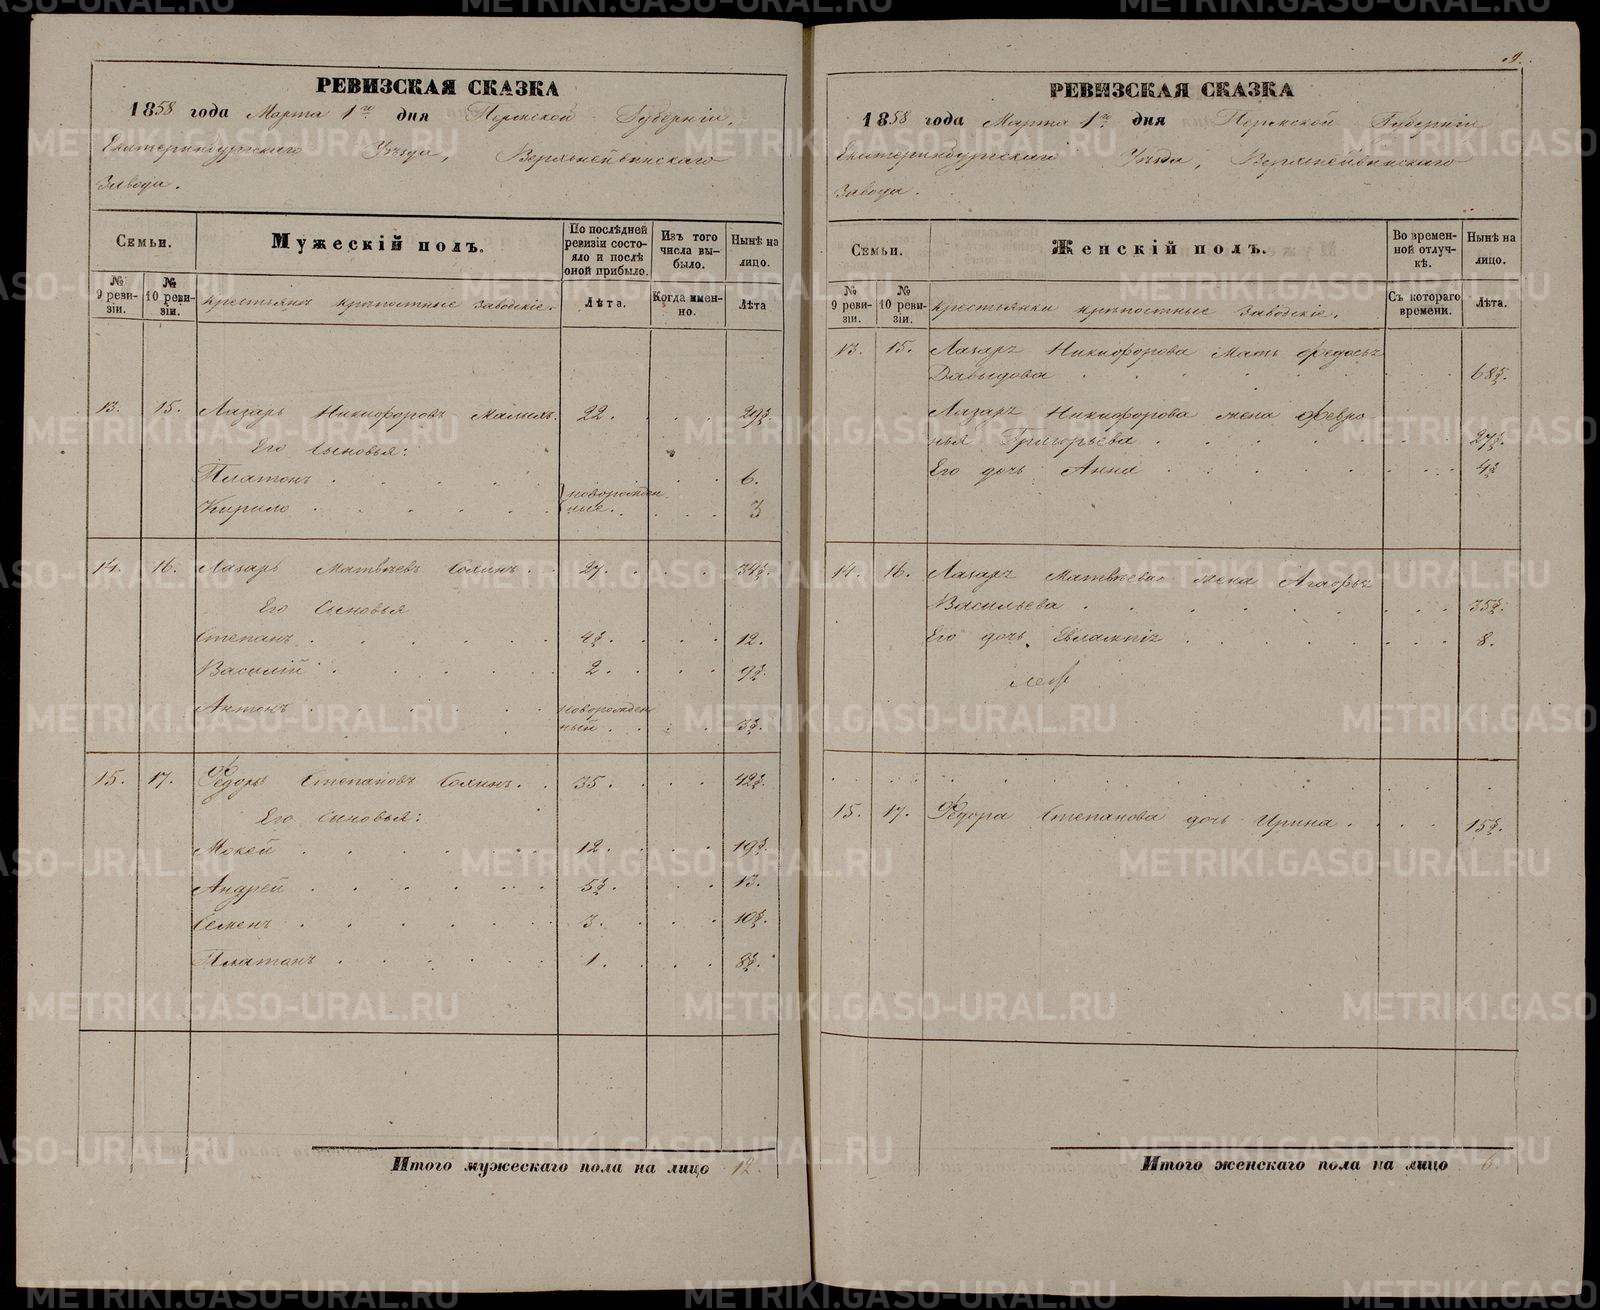 РЕВИЗСКАЯ СКАЗКА
1858 года Марта 1го дня Пермской Губерніи,
Екатеринбургскаго Уѣзда, Верхнейвинскаго
Завода.
Семьи.
№ 9 ревизіи.
№ 10 ревизіи.
Мужескій полъ.
Крестьянъ крѣпостные заводскіе.
По послѣдней ревизіи состояло и послѣ оной прибыло.
Лѣта.
Изъ того числа выбыло.
Когда именно.
Нынѣ на лицо.
Лѣта
13. 15. Лазарь Никифоровъ 22. 29½
Его Сыновья:
Платонъ 6.
Кирило новорожденные. 3
14. 16. Лазарь Матвѣевъ 27. 34½
Его Сыновья
Степанъ 4½. 12.
Василій 2. 9½
Антонъ новорожденный. 3½.
15. 17. Федоръ Степановъ 35. 42½
Его Сыновья:
Мокей 12. 19½
Андрей 5½. 13.
Семенъ 3. 10½.
Платонъ 1. 8½.
Итого мужескаго пола на лицо 12.
9.
РЕВИЗСКАЯ СКАЗКА
1858 года Марта 1го дня Пермской Губерніи
Екатеринбургскаго Уѣзда, Верхнейвинскаго
Завода.
Семьи.
№ 9 ревизіи.
№ 10 ревизіи.
Женскій полъ.
Крестьянки крѣпостные заводскіе.
Во временной отлучкѣ.
Съ котораго времени.
Нынѣ на лицо.
Лѣта.
13. 15. Лазаря Никифорова Мать Федосья
Давыдова 68½.
Лазаря Никифорова жена Февро-
нья Григорьева 27½.
Его дочь Анна 4½
14. 16. Лазаря Матвѣева жена Агафья
Васильева 35½.
Его дочь Евлампія 8.
15. 17. Федора Степанова дочь Ирина. 15½.
Итого женскаго пола на лицо 6.
METRIKI.GASO-URAL.RU